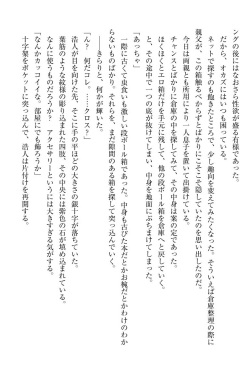 ングの後にはなおさら性欲が盛るお年頃である。
だから、オカズはいつでも困っている。
ネットで探すのも飽きたところで、少し趣向を変えてみたくなった。そういえば倉庫整理の際に
親父が、この箱触るべからずとばかりに倉庫の奥に隠していたのを思い出したのだ。
今日は両親とも所用により一人息子を置いて出掛けている。
チャンスとばかりに倉庫の中を探してみて、その中身は案の定であった。
ほくほくとエロ箱だけを手元に残して、他の段ボール箱を倉庫へと戻していく。
と、その途中で一つの底が抜けてしまい、中身を地面にぶちまけてしまった。
「あっちゃ」
一際に古くて虫食いも激しい段ボール箱であった。中身も古びた本だとかお椀だとかわけのわか
らないものばかり。それらを、まだ隙間のある箱を探して突っ込んでいく。
と、きらりと、何かが輝いた。
「ん？　何だコレ。……クロス？」
浩人が目を向けた先に、そこに手の平ほどの大きさの銀十字が落ちていた。
葉筋のような紋様の彫り込まれた四肢。その中央には紫色の石が填め込まれている。
なんに使うものだろう？　アクセサリーというには大きすぎる気がする。
「なんかカッコイイな。部屋にでも飾ろうか」
十字架をポケットに突っ込んで、浩人は片付けを再開する。